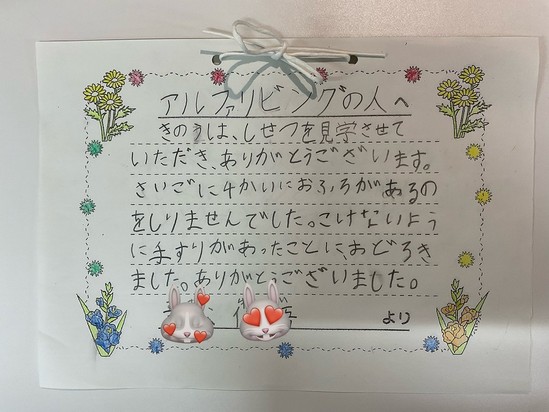 アルファリビングの人へ
きのうは、しせつを見学させて
いただき、ありがとうございます。
さいごに4かいにおふろがあるの
をしりませんでした。こけないよう
に手すりがあったことに、おどろき
ました。ありがとうございました。
より